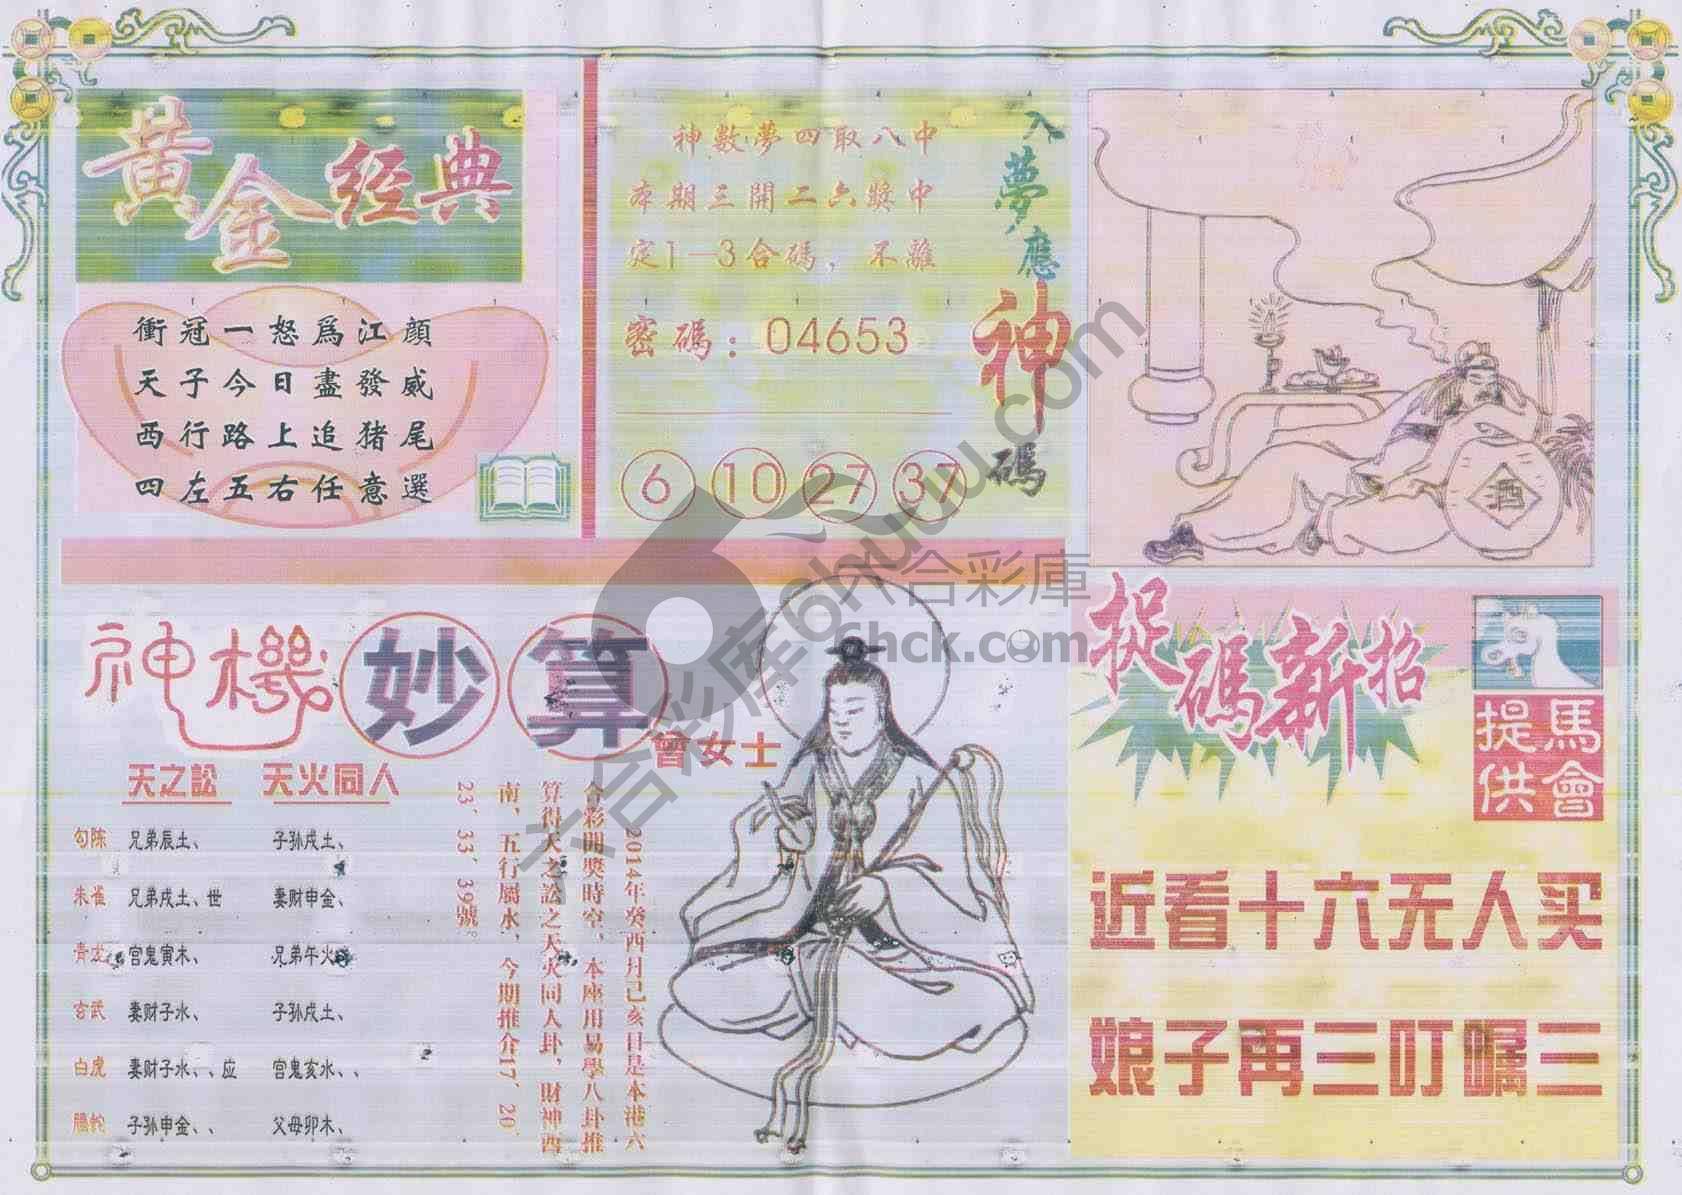 黃金經典
衝冠一怒爲江顔
天子今日盡發威
西行路上追猪尾
四左五右任意選
入夢應神碼
神數夢四取八中
本期三開二六獎中
定1—3合碼，不離
密碼：04653
6 10 27 37
酒
神機妙算
曾女士
天之訟 天火同人
句陈 兄弟辰土、 子孙戌土、
朱雀 兄弟戌土、世 妻财申金、
青龙 宫鬼寅木、 兄弟午火
玄武 妻财子水、 子孙戌土、
白虎 妻财子水、、应 宫鬼亥水、、
腾蛇 子孙申金、、 父母卯木、
2014年癸酉月己亥日是本港六
合彩開獎時空，本座用易學八卦推
算得天之訟之天火同人卦，財神西
南，五行屬水，今期推介17、20、
23、33、39號。
捉碼新招
馬會提供
近看十六无人买
娘子再三叮嘱三
六合彩库6huwu.com
六合彩庫
6hck.com